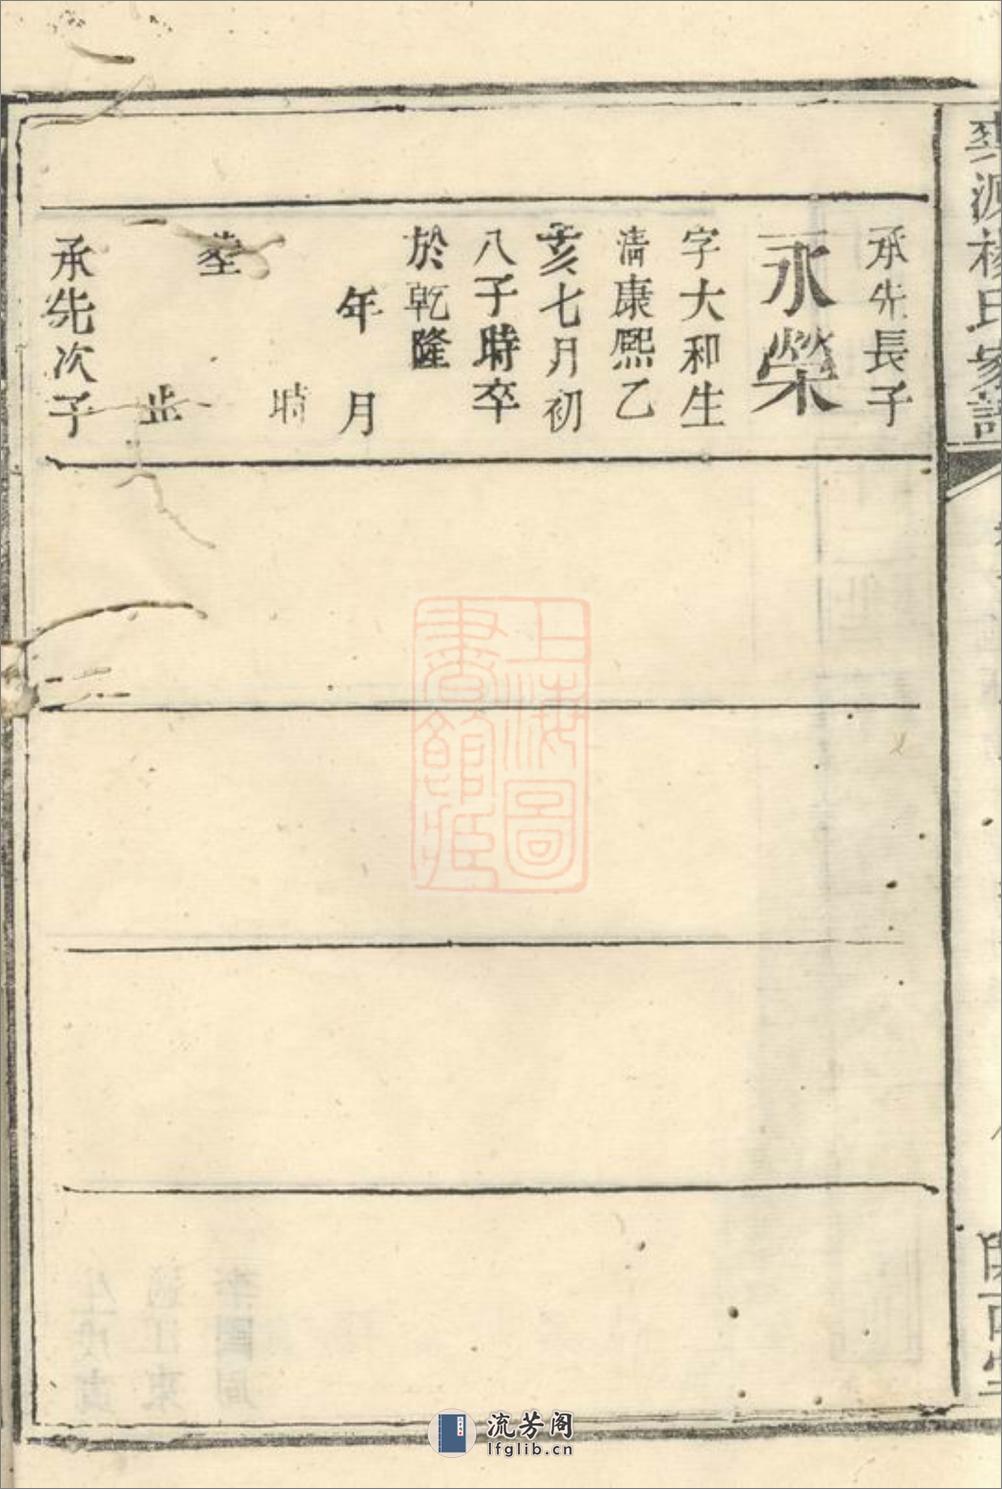 源楊氏家譜
承先長子
永榮
字大和生
清康熙乙
亥七月初
八子時卒
於乾隆
年 月
時
塟
止
承先次子
上海圖
書館藏
流芳阁
lfglib.cn